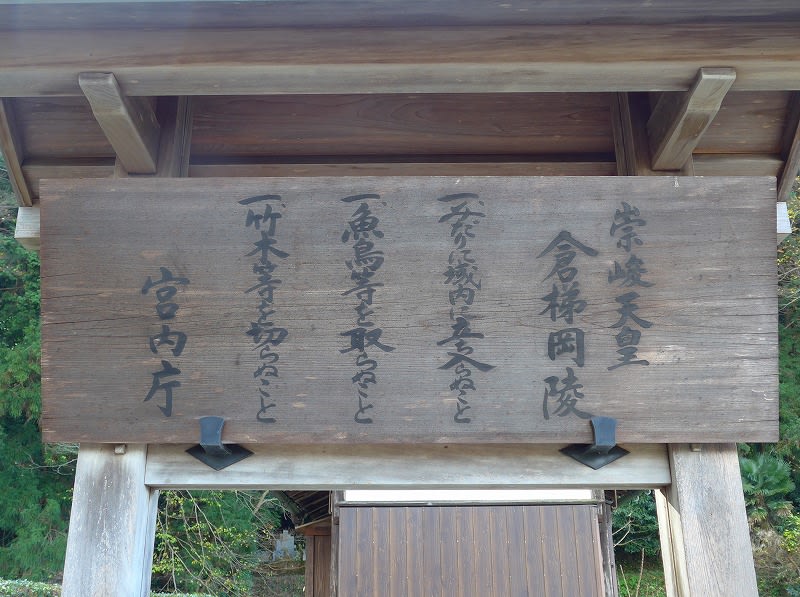 崇峻天皇
倉梯岡陵
一、みだりに域内に立ち入らぬこと
一、魚鳥等を取らぬこと
一、竹木等を切らぬこと
宮内庁